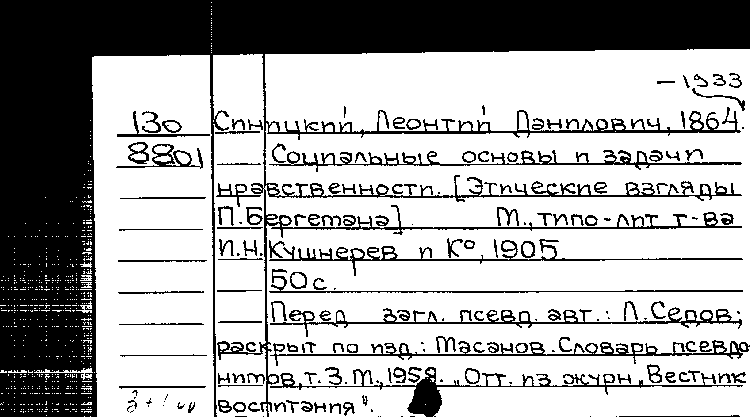 — 1933
130 Синицкий, Леонтий Данилович, 1864.
8801 Социальные основы и задачи
нравственности. [Этические взгляды
П. Бергемана] М., типо-лит т-ва
И.Н. Кушнерев и К°, 1905.
50 с.
Перед загл. псевд. авт.: Л. Седов;
раскрыт по изд.: Масанов. Словарь псевдо-
нимов, т. 3. М., 1958. „Отт. из журн. Вестник
воспитания".